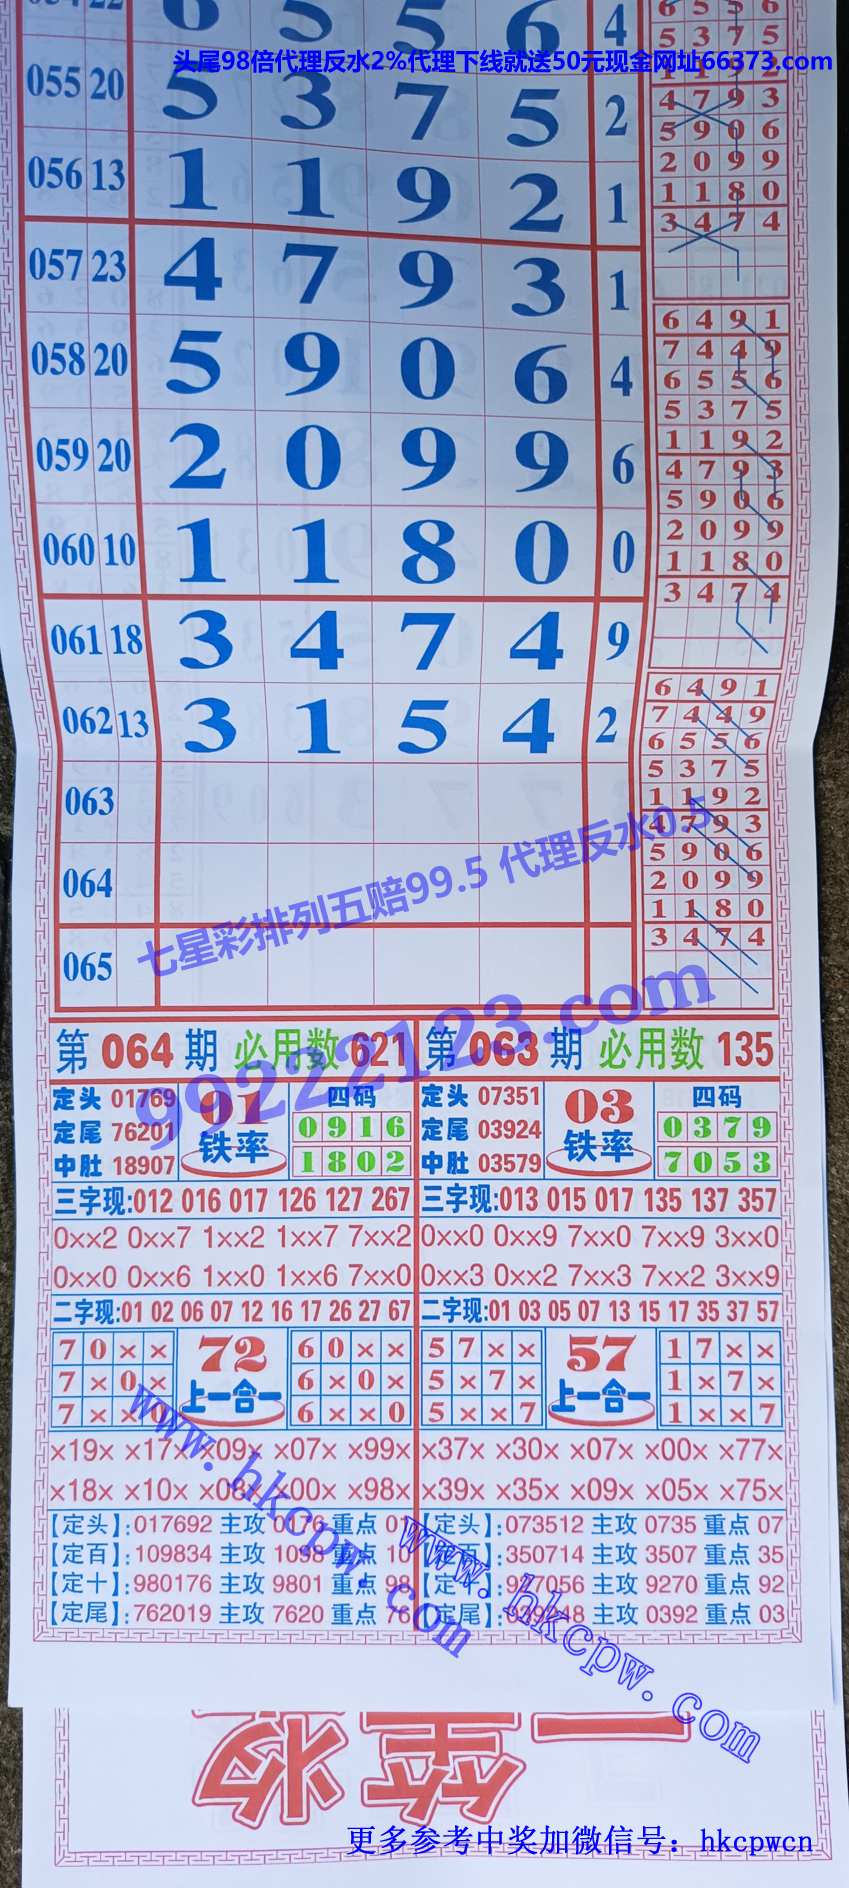 头尾98倍代理反水2%代理下线就送50元现金网址66373.com
6 5 5 6 4
055 20 5 3 7 5 2
056 13 1 1 9 2 1
057 23 4 7 9 3 1
058 20 5 9 0 6 4
059 20 2 0 9 9 6
060 10 1 1 8 0 0
061 18 3 4 7 4 9
062 13 3 1 5 4 2
063
064
065
6 5 5 6
5 3 7 5
1 1 9 2
4 7 9 3
5 9 0 6
2 0 9 9
1 1 8 0
3 4 7 4
6 4 9 1
7 4 4 9
6 5 5 6
5 3 7 5
1 1 9 2
4 7 9 3
5 9 0 6
2 0 9 9
1 1 8 0
3 4 7 4
6 4 9 1
7 4 4 9
6 5 5 6
5 3 7 5
1 1 9 2
4 7 9 3
5 9 0 6
2 0 9 9
1 1 8 0
3 4 7 4
七星彩排列五赔99.5 代理反水0.5
99222123.com
第064期 必用数621
定头 01769
定尾 76201
中肚 18907
91
铁率
四码
0 9 1 6
1 8 0 2
三字现:012 016 017 126 127 267
0××2 0××7 1××2 1××7 7××2
0××0 0××6 1××0 1××6 7××0
二字现:01 02 06 07 12 16 17 26 27 67
7 0 × ×
7 × 0 ×
7 × × 0
72
上一合一
6 0 × ×
6 × 0 ×
6 × × 0
×19× ×17× ×09× ×07× ×99×
×18× ×10× ×08× ×00× ×98×
【定头】:017692 主攻 0176 重点 01
【定百】:109834 主攻 1098 重点 10
【定十】:980176 主攻 9801 重点 98
【定尾】:762019 主攻 7620 重点 76
第063期 必用数135
定头 07351
定尾 03924
中肚 03579
03
铁率
四码
0 3 7 9
7 0 5 3
三字现:013 015 017 135 137 357
0××0 0××9 7××0 7××9 3××0
0××3 0××2 7××3 7××2 3××9
二字现:01 03 05 07 13 15 17 35 37 57
5 7 × ×
5 × 7 ×
5 × × 7
57
上一合一
1 7 × ×
1 × 7 ×
1 × × 7
×37× ×30× ×07× ×00× ×77×
×39× ×35× ×09× ×05× ×75×
【定头】:073512 主攻 0735 重点 07
【定百】:350714 主攻 3507 重点 35
【定十】:927056 主攻 9270 重点 92
【定尾】:039248 主攻 0392 重点 03
www.hkcpw.com
www.hkcpw.com
更多参考中奖加微信号：hkcpwcn